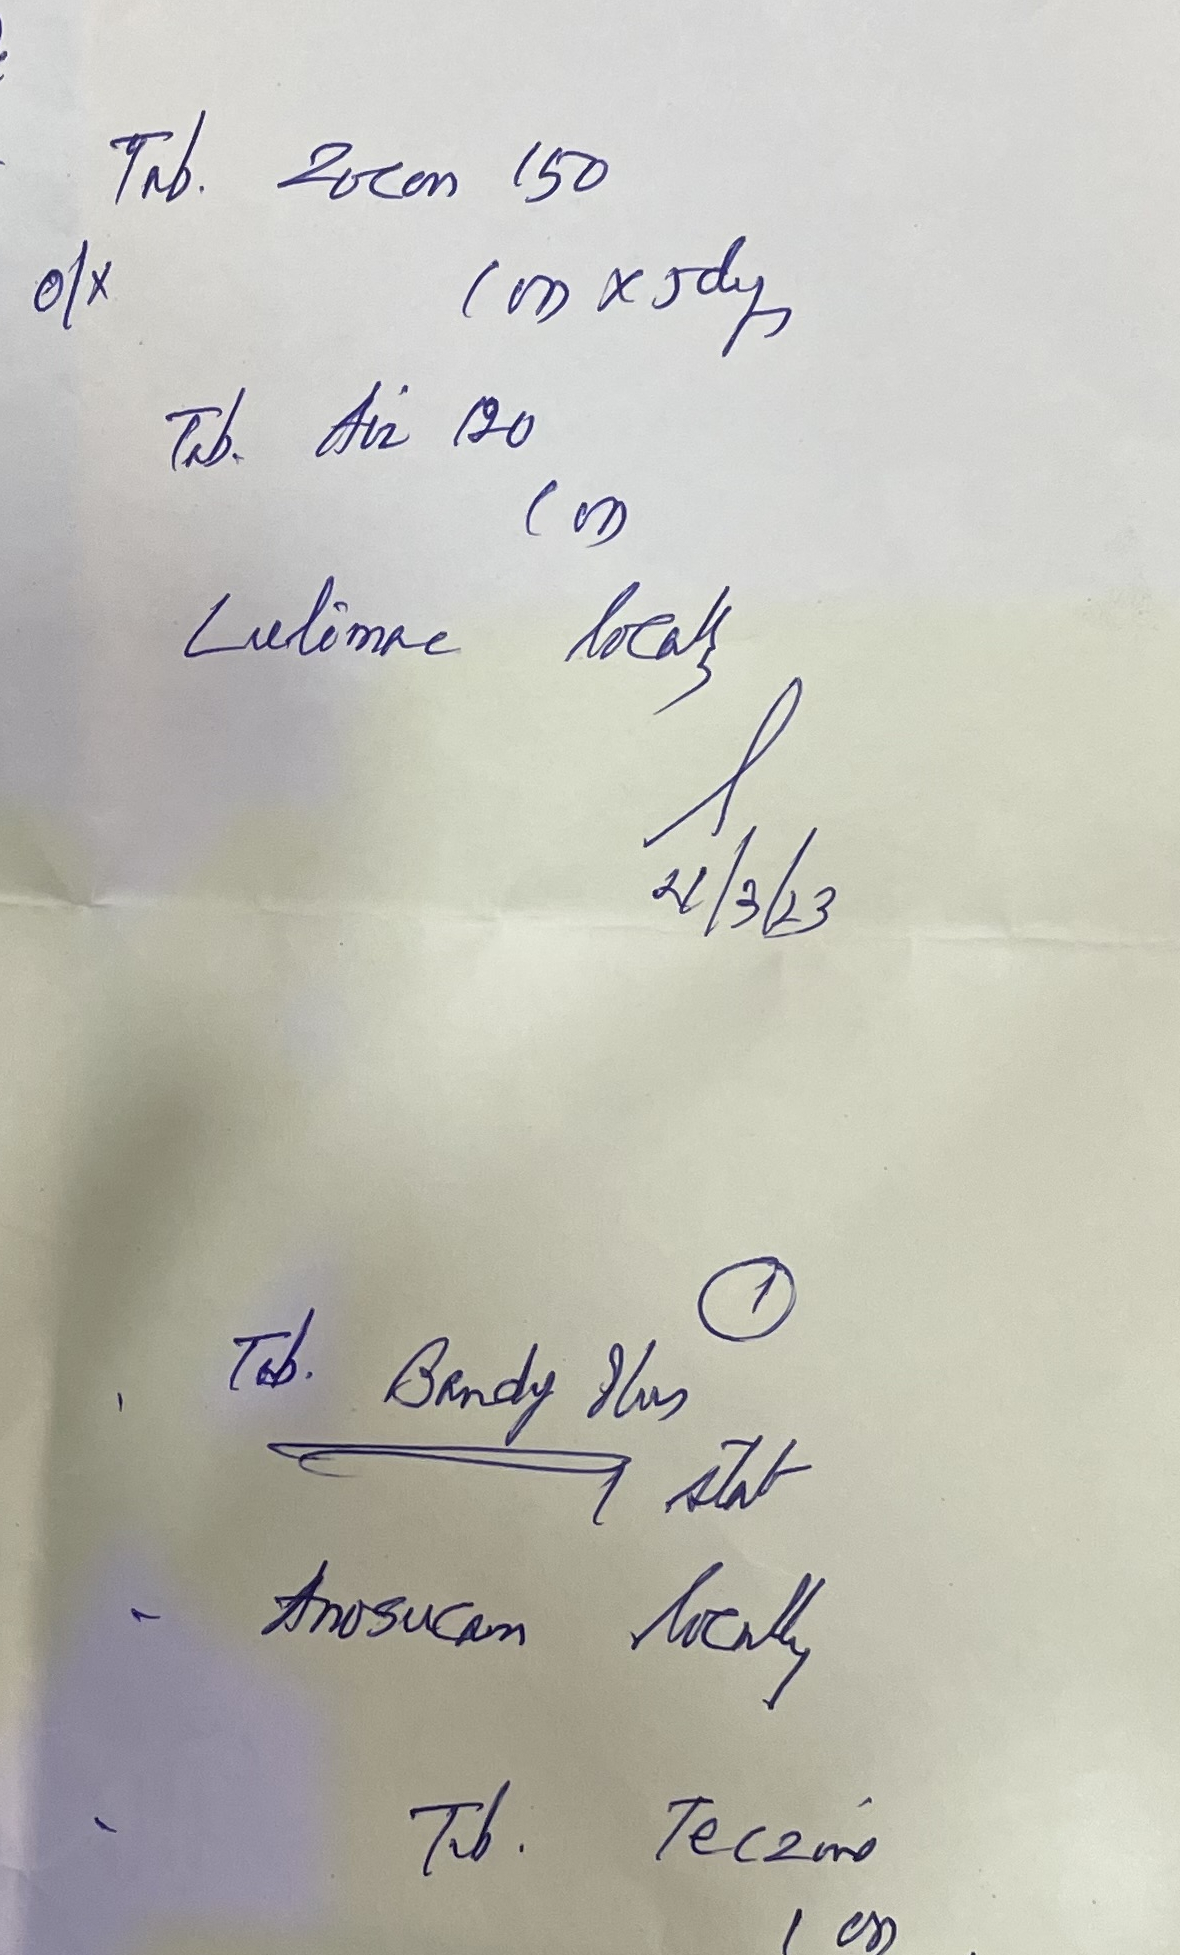 Tab. Zocon 150
1 OD x 5 days
Tab. Air 120
1 OD
Lulimac locally
21/3/23
1
Tab. Bandy Plus
stat
Anosucam locally
Tab. Teczine
1 OD